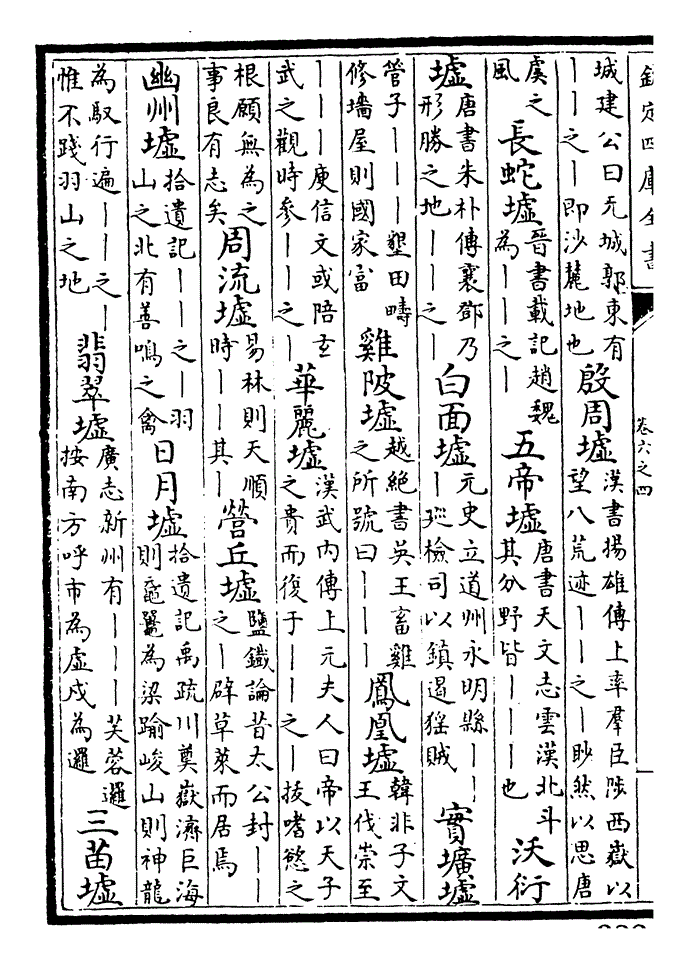 欽定四庫全書
卷六之四
城建公曰元城郭東有｜｜之｜即沙麓地也 殷周墟 漢書揚雄傳上率羣臣陟西嶽以望八荒迹｜｜之｜眇然以思唐
虞之風 長蛇墟 晉書載記趙魏為｜｜之｜ 五帝墟 唐書天文志雲漢北斗其分野皆｜｜｜也 沃衍
墟 唐書朱朴傳襄鄧乃形勝之地｜｜之｜ 白面墟 元史立道州永明縣｜｜｜廵檢司以鎮遏猺賊 實壙墟
管子｜｜｜墾田疇修墻屋則國家富 雞陂墟 越絶書吳王畜雞之所號曰｜｜｜ 鳳凰墟 韓非子文王伐崇至
｜｜｜庾信文或陪玄武之觀時參｜｜之｜ 華麗墟 漢武内傳上元夫人曰帝以天子之貴而復于｜｜之｜拔嗜慾之
根願無為之事良有志矣 周流墟 易林則天順時｜｜其｜ 營丘墟 鹽鐵論昔太公封｜｜之｜辟草萊而居焉
幽州墟 拾遺記｜｜之｜羽山之北有善鳴之禽 日月墟 拾遺記禹疏川奠嶽濟巨海則黿鼉為梁踰峻山則神龍
為馭行遍｜｜之｜惟不踐羽山之地 翡翠墟 廣志新州有｜｜｜芙蓉邏按南方呼市為虚戍為邏 三苗墟